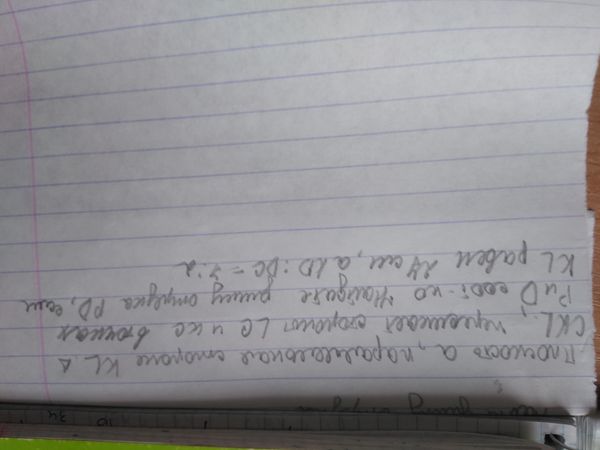 Плоскость a, параллельная стороне KL △
CKL, пересекает стороны LC и KC в точках
P и D соот-но. Найдите длину отрезка PD, если
KL равен 24 см, а LD : DC = 7:2